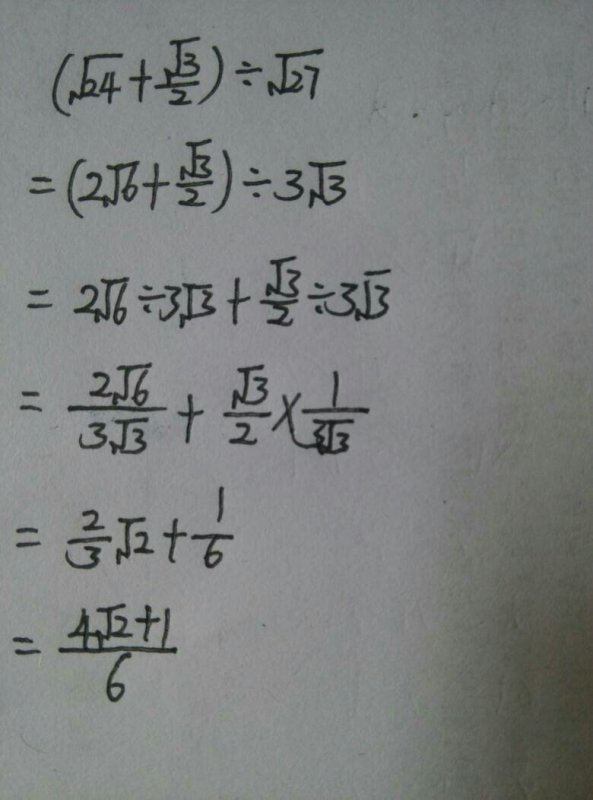 (√24 + √3/2) ÷ √27
= (2√6 + √3/2) ÷ 3√3
= 2√6 ÷ 3√3 + √3/2 ÷ 3√3
= 2√6/3√3 + √3/2 × 1/3√3
= 2/3 √2 + 1/6
= 4√2+1/6